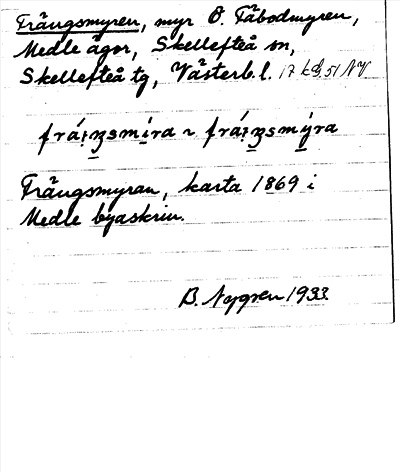 Frängsmyren, myr Ö. Fäbodmyren,
Medle ägor, Skellefteå sn,
Skellefteå tg, Västerb. l. 17 kd, 51 NV
Frängsmyran, karta 1869 i
Medle byaskrin.
B. Nygren 1933.